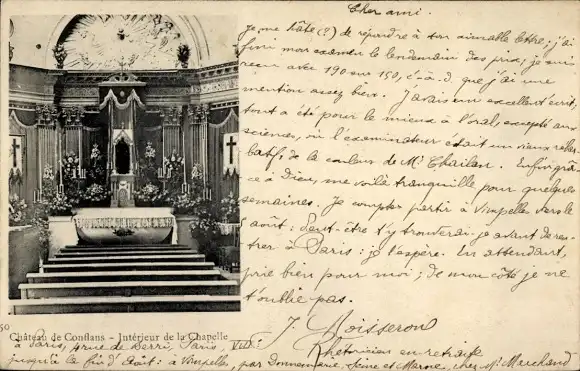 Cher ami.
Je me hâte (?) de répondre à ton aimable lettre : j'ai
fini mon examen le lendemain des prix, je suis
reçu avec 190 sur 150, c-à-d. que j'ai une
mention assez bien. J'avais un excellent écrit,
tout a été pour le mieux à l'oral, excepté aux
sciences, où l'examinateur était un vieux rebar-
batif, de la couleur de Mr Enfin grâ-
ce à Dieu, me voilà tranquille pour quelques
semaines. Je compte partir à Vimpelles vers le
août : Peut-être t'y trouverai-je avant de ren-
trer à Paris : je l'espère. En attendant,
prie bien pour moi ; de mon côté je ne
t'oublie pas.
J. Moisseron
Rhétoricien en retraite
50
Château de Conflans - Intérieur de la Chapelle
à Paris, rue de Berri, Paris, VIII:
jusqu'à la fin d'Août : à Vimpelles, par Donnemarie, Seine et Marne, chez Mr Marchand